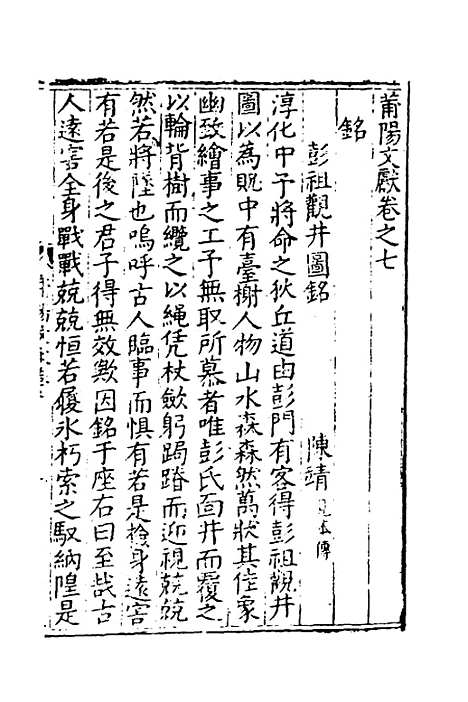 莆陽文獻卷之七
銘
彭祖觀井圖銘　陳靖 見本傳
淳化中予將命之狄丘道由彭門有客得彭祖觀井
圖以為貺中有臺榭人物山水森森然萬狀其住象
幽致繪事之工予無取所慕者唯彭氏面井而覆之
以輪背樹而纜之以䋲凭杖歛躬跼蹐而近視兢兢
然若將墜也嗚呼古人臨事而惧有若是捨身遠害
有若是後之君子得無效歟因銘于座右曰至哉古
人遠害全身戰戰兢兢恒若履氷朽索之馭納隍是